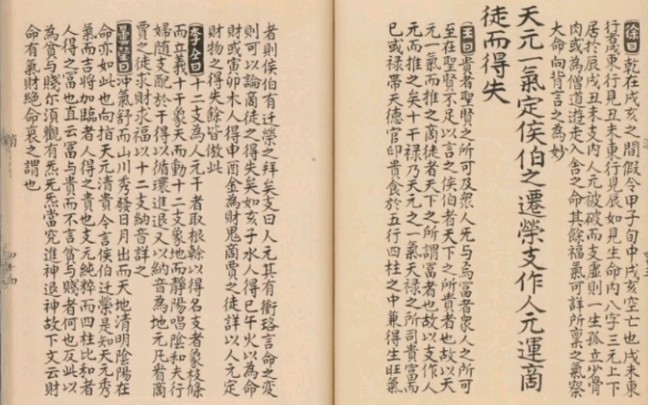 徐曰乾在戌亥之間假令甲子旬中戌亥空亡也戌未東
行嵗東行見丑未東行見辰如見生命內八字三元上下
居於辰戌丑未支內人元被破而支虛則一生孤立少骨
肉或為僧道遊走入舍之命其餘福氣可詳所稟之氣察
大命向背言之為妙
天元一氣定侯伯之遷榮支作人元運商
徒而得失
王曰貴者聖賢之所可及衆人旡与焉富者衆人之所可
至在聖賢不足以言之侯伯者天下之所貴者也故以天
元一氣而推之商徒者天下之所謂富者也故以支作人
元而推之矣十干祿乃天元之一氣天祿之所司貴富而
已或祿帶天德官印貴食於五行四柱之中兼得生旺氣
者則侯伯有遷榮之拜矣支曰人元其有衒珞言命之變
則可以論商徒之得失矣如亥子水人得巳午火以為命
財或寅卯木人得申酉金為財鬼商賈之徒詳以人元定
財物之得失餘皆倣此
李仝曰十二支為人元干者取根榦以得名支者象枝條
而立義十干象天而動十二支象地而靜陽唱陰和夫行
婦隨支配於干得以循環進退又以納音為地元凡看商
賈之徒求財求福以十二支納音詳之
曇瑩曰沖氣舒而山川秀發日月出而天地清明陰陽在
命亦如此也向指天元清貴今言侯伯迁榮是知天元秀
氣而吉將加臨者人得之貴也支元純粹而四柱比和者
人得之富也直云冨与貴而不言貧与賤者何也反此以
為貧与賤尔須觀有炁旡炁當究進神退神故下文云財
命有氣財絕命衰之謂也